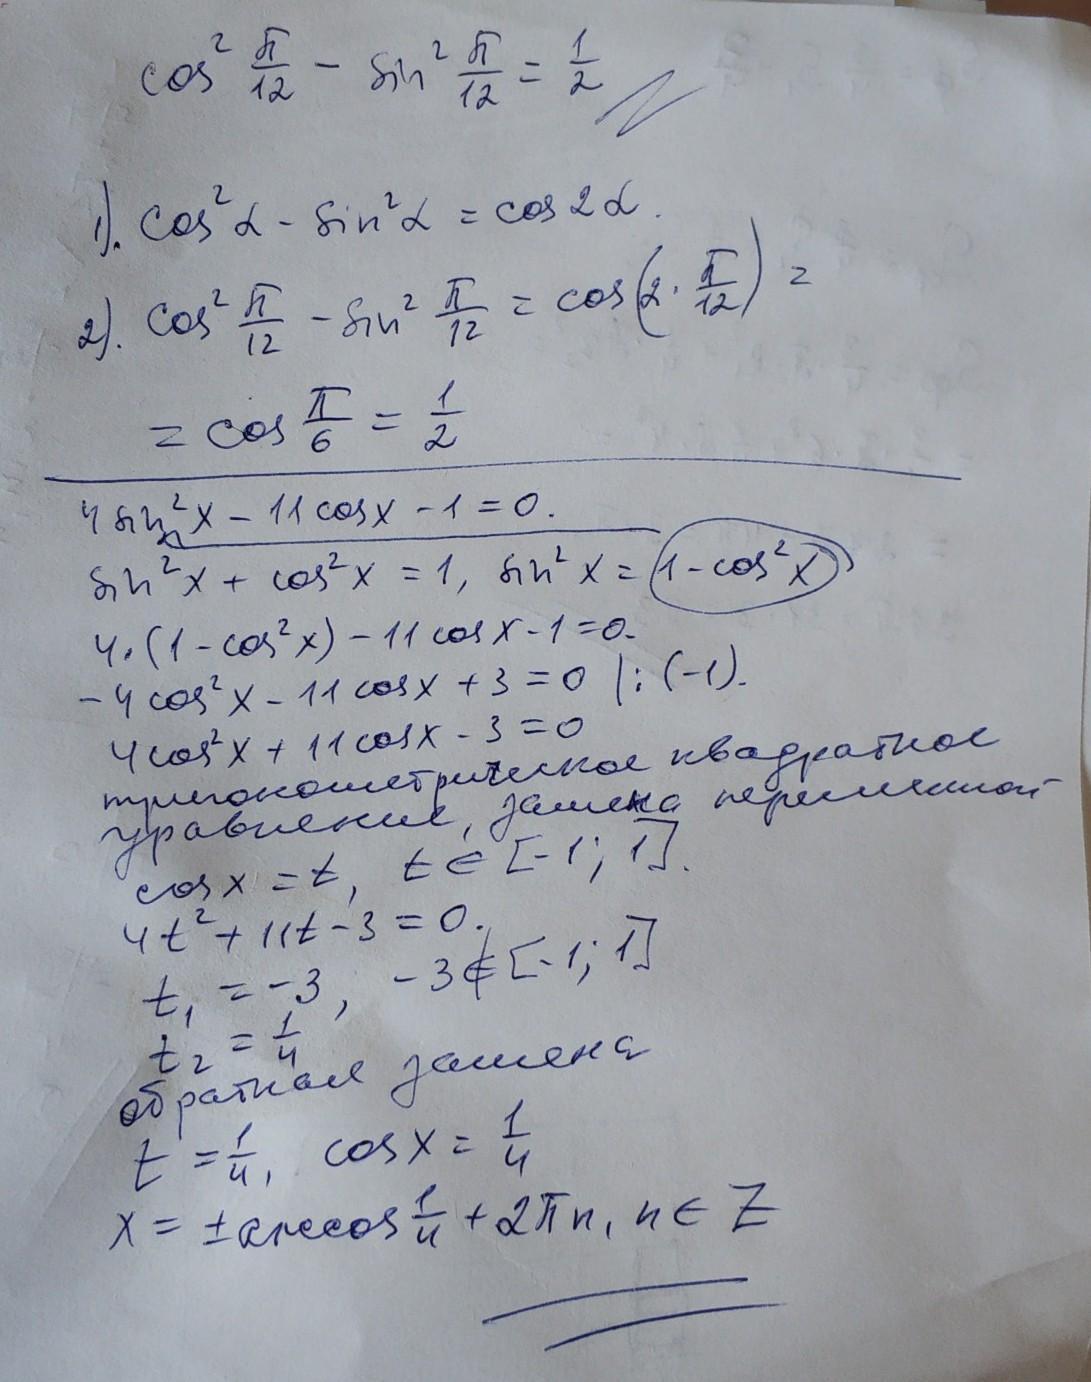 cos² π/12 - sin² π/12 = 1/2
1). cos²α - sin²α = cos2α.
2). cos² π/12 - sin² π/12 = cos(2·π/12) =
= cos π/6 = 1/2
4sin²x - 11cosx - 1 = 0.
sin²x + cos²x = 1, sin²x = 1-cos²x
4·(1-cos²x) - 11cosx - 1 = 0.
-4cos²x - 11cosx + 3 = 0 |:(-1).
4cos²x + 11cosx - 3 = 0
тригонометрическое квадратное
уравнение, замена переменной
cosx = t, t ∈ [-1; 1].
4t² + 11t - 3 = 0.
t₁ = -3, -3 ∉ [-1; 1]
t₂ = 1/4
обратная замена
t = 1/4, cosx = 1/4
x = ±arccos 1/4 + 2πn, n ∈ Z